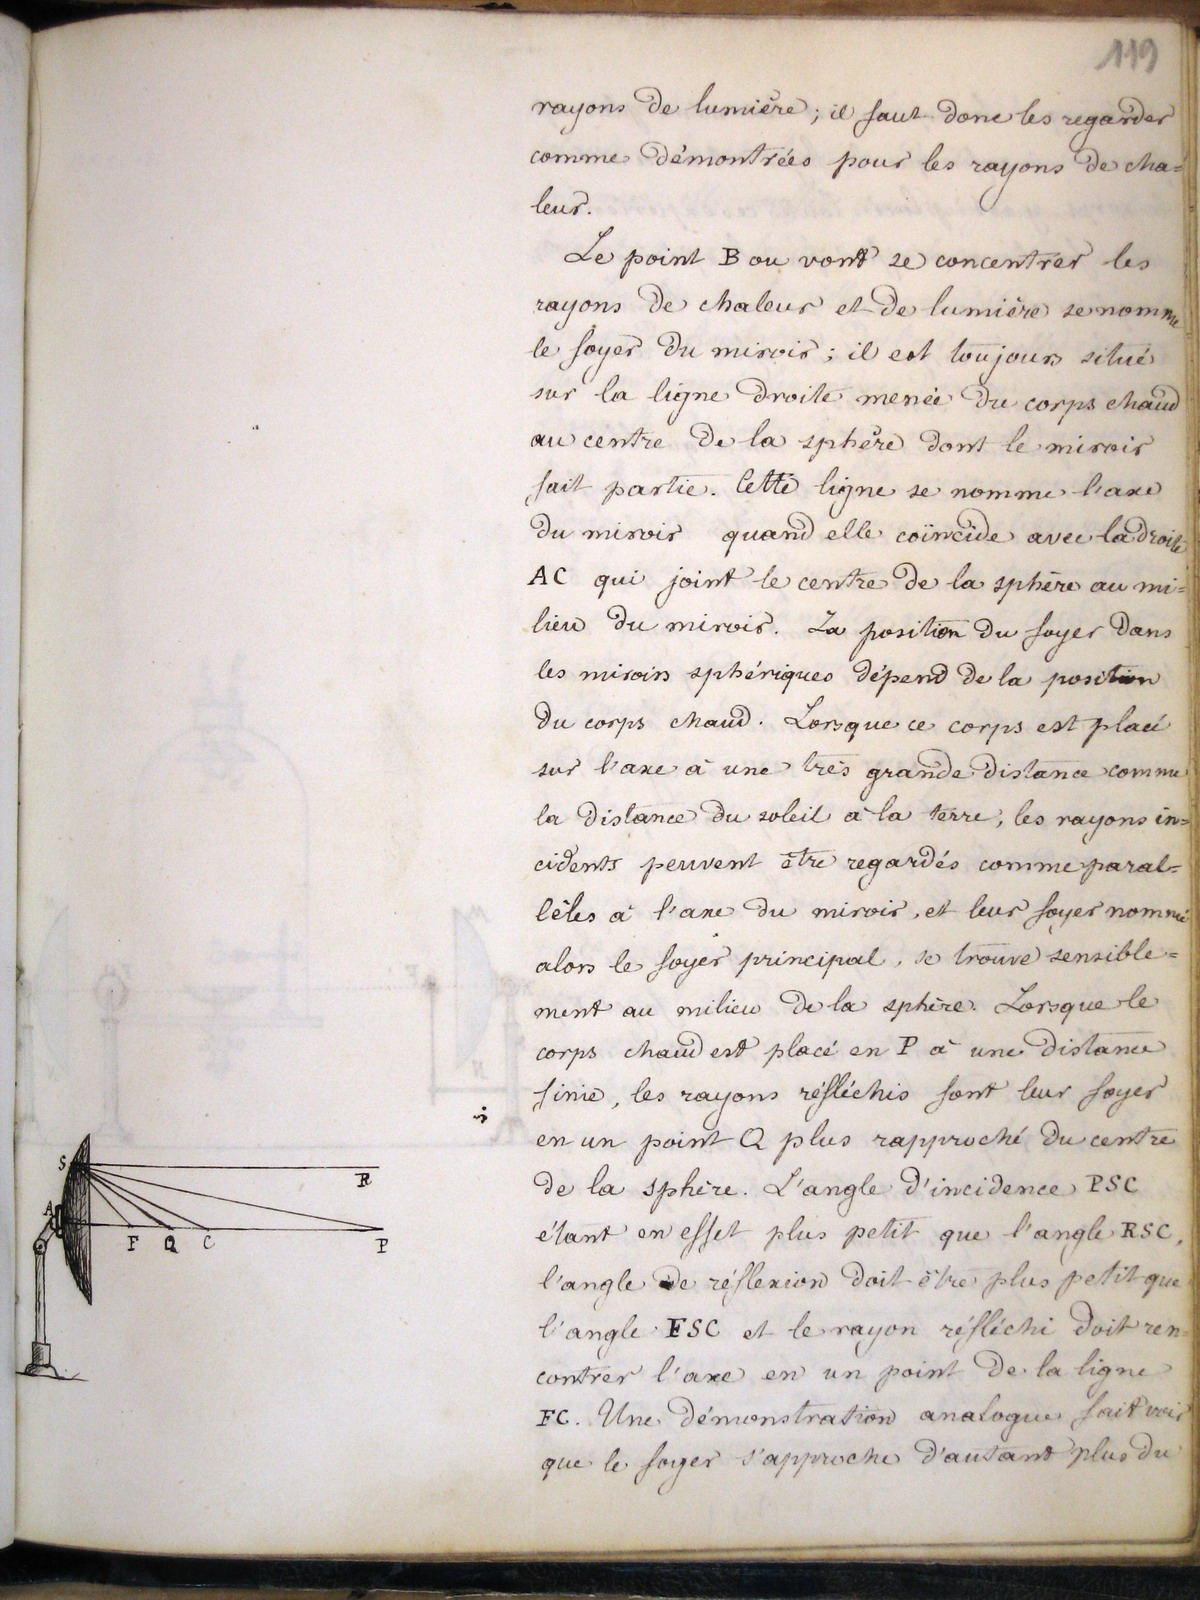 119
rayons de lumière ; il faut donc les regarder
comme démontrées pour les rayons de cha=
leur.
Le point B ou vont se concentrer les
rayons de chaleur et de lumière se nomme
le foyer du miroir ; il est toujours situé
sur la ligne droite menée du corps chaud
au centre de la sphère dont le miroir
fait partie. Cette ligne se nomme l'axe
du miroir quand elle coïncide avec la droite
AC qui joint le centre de la sphère au mi=
lieu du miroir. La position du foyer dans
les miroirs sphériques dépend de la position
du corps chaud. Lorsque ce corps est placé
sur l'axe à une très grande distance comme
la distance du soleil à la terre, les rayons in=
cidents peuvent être regardés comme paral=
lèles à l'axe du miroir, et leur foyer nommé
alors le foyer principal, se trouve sensible=
ment au milieu de la sphère. Lorsque le
corps chaud est placé en P à une distance
finie, les rayons réfléchis font leur foyer
en un point Q plus rapproché du centre
de la sphère. L'angle d'incidence PSC
étant en effet plus petit que l'angle RSC,
l'angle de réflexion doit être plus petit que
l'angle FSC et le rayon réfléchi doit ren=
contrer l'axe en un point de la ligne
FC. Une démonstration analogue fait voir
que le foyer s'approche d'autant plus du
S
R
A
F Q C P